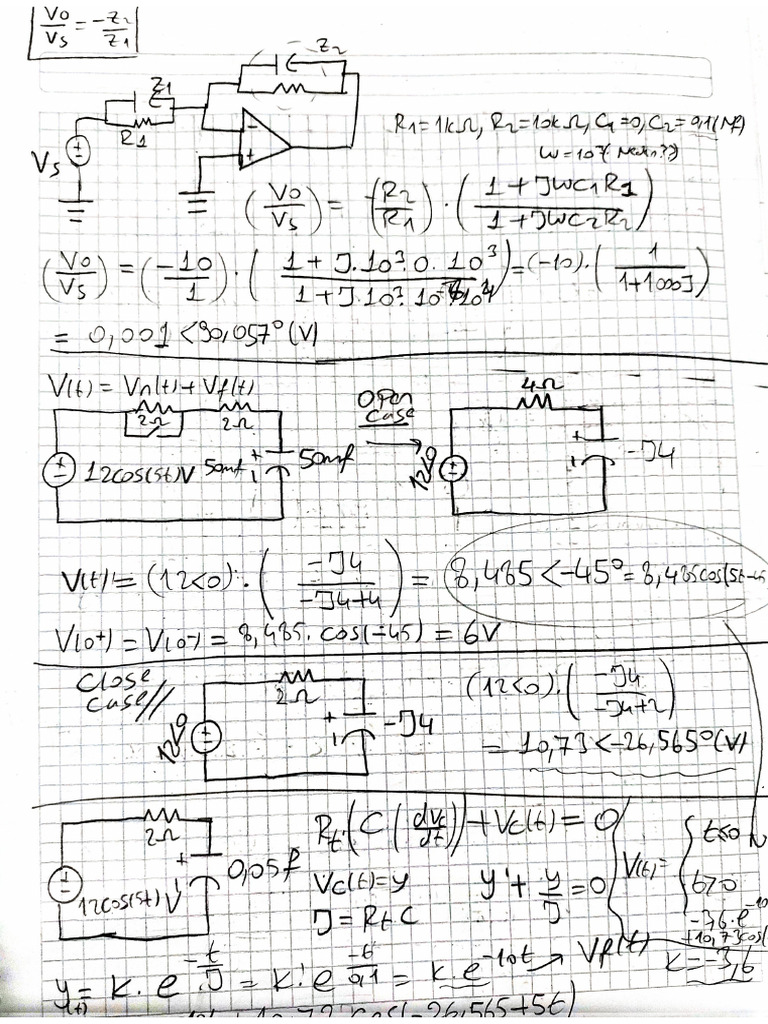 Vo/Vs = -Z2/Z1
Z2
Z1
R1
Vs
R1=1kΩ, R2=10kΩ, C1=0, C2=0,1(Mf)
(Vo/Vs) = (-R2/R1) · (1+JWC1R1 / 1+JWC2R2)
(Vo/Vs) = (-10/1) · (1+J·10^7·0·10^3 / 1+J·10^7·10^-7·10^4) = (-10) · (1 / 1+1000J)
= 0,001 <90,057° (V)
V(t) = Vn(t) + Vf(t)
2Ω
2Ω
12cos(5t)V
50mf
50mf
OPEN CASE
4Ω
12<0
-J4
V(t) = (12<0) · (-J4 / -J4+4) = 8,485 <-45° = 8,485cos(5t-45
V(0+) = V(0-) = 8,485 · cos(-45) = 6V
CLOSE CASE//
2Ω
12<0
-J4
(12<0) · (-J4 / -J4+2)
= 10,73 <-26,565° (V)
2Ω
12cos(5t)V
0,05f
Rt·(C(dvc/dt)) + Vc(t) = 0
Vc(t) = y
y' + y/J = 0
J = Rt C
V(t) =
t<0
t>0
-3,6·e^-10
+10,73cos(
K = -3,6
y(t) = K·e^(-t/J) = K·e^(-t/0,1) = K·e^-10t → Vf(t)
10,73 cos(-26,565+5t)